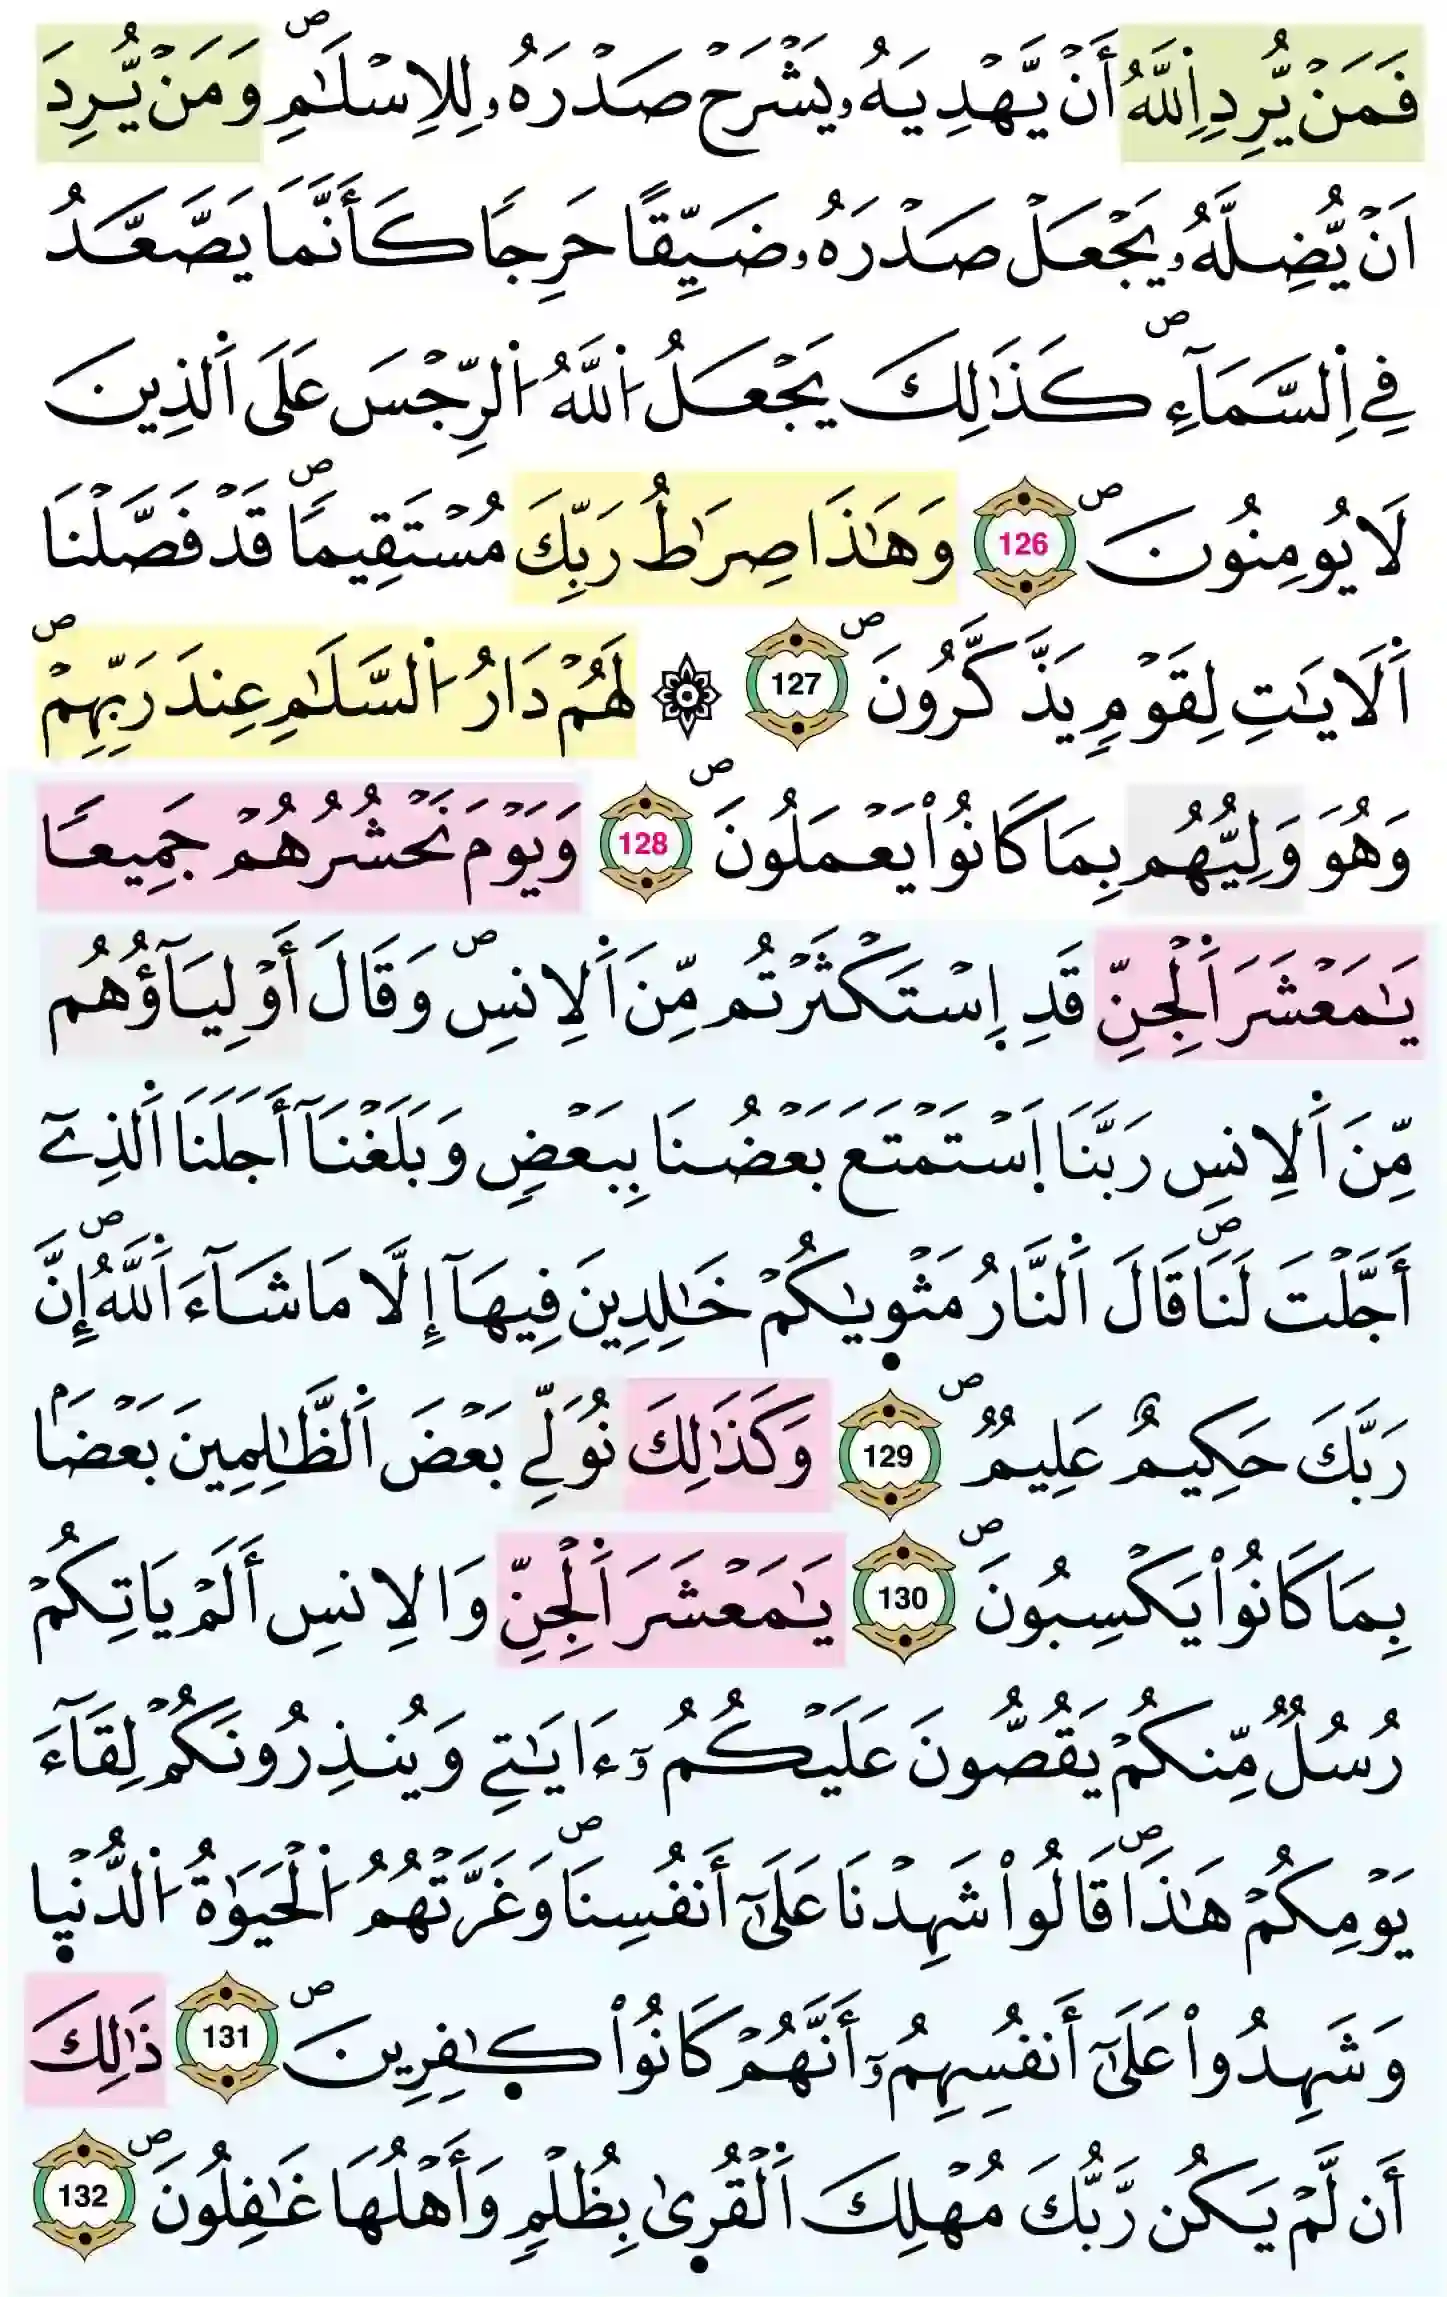 فَمَنْ يُّرِدِ اِ۬للَّهُ أَنْ يَّهْدِيَهُۥ يَشْرَحْ صَدْرَهُۥ لِلِاسْلَٰمِۖ وَمَنْ يُّرِدَ
اَنْ يُّضِلَّهُۥ يَجْعَلْ صَدْرَهُۥ ضَيِّقًا حَرِجًا كَأَنَّمَا يَصَّعَّدُ
فِے اِ۬لسَّمَآءِۖ كَذَٰلِكَ يَجْعَلُ اُ۬للَّهُ اُ۬لرِّجْسَ عَلَى اَ۬لذِينَ
لَا يُومِنُونَۖ 126 وَهَٰذَا صِرَٰطُ رَبِّكَ مُسْتَقِيمًاۖ قَدْ فَصَّلْنَا
اَ۬لَايَٰتِ لِقَوْمٍ يَذَّكَّرُونَۖ 127 ۞ لَهُمْ دَارُ اُ۬لسَّلَٰمِ عِندَ رَبِّهِمْۖ
وَهُوَ وَلِيُّهُم بِمَا كَانُواْ يَعْمَلُونَۖ 128 وَيَوْمَ نَحْشُرُهُمْ جَمِيعًا
يَٰمَعْشَرَ اَ۬لْجِنِّ قَدِ اِ۪سْتَكْثَرْتُم مِّنَ اَ۬لِانسِۖ وَقَالَ أَوْلِيَآؤُهُم
مِّنَ اَ۬لِانسِ رَبَّنَا اَ۪سْتَمْتَعَ بَعْضُنَا بِبَعْضٍ وَبَلَغْنَآ أَجَلَنَا اَ۬لذِےٓ
أَجَّلْتَ لَنَاۖ قَالَ اَ۬لنَّارُ مَثْو۪يٰكُمْ خَٰلِدِينَ فِيهَآ إِلَّا مَا شَآءَ اَ۬للَّهُۖ إِنَّ
رَبَّكَ حَكِيمٌ عَلِيمٌۖ 129 وَكَذَٰلِكَ نُوَلِّے بَعْضَ اَ۬لظَّٰلِمِينَ بَعْضَۢا
بِمَا كَانُواْ يَكْسِبُونَۖ 130 يَٰمَعْشَرَ اَ۬لْجِنِّ وَالِانسِ أَلَمْ يَاتِكُمْ
رُسُلٌ مِّنكُمْ يَقُصُّونَ عَلَيْكُمُۥٓ ءَايَٰتِے وَيُنذِرُونَكُمْ لِقَآءَ
يَوْمِكُمْ هَٰذَاۖ قَالُواْ شَهِدْنَا عَلَىٰٓ أَنفُسِنَاۖ وَغَرَّتْهُمُ اُ۬لْحَيَوٰةُ اُ۬لدُّنْي۪ا
وَشَهِدُواْ عَلَىٰٓ أَنفُسِهِمُۥٓ أَنَّهُمْ كَانُواْ كٰ۪فِرِينَۖ 131 ذَٰلِكَ
أَن لَّمْ يَكُن رَّبُّكَ مُهْلِكَ اَ۬لْقُر۪ىٰ بِظُلْمٍ وَأَهْلُهَا غَٰفِلُونَۖ 132